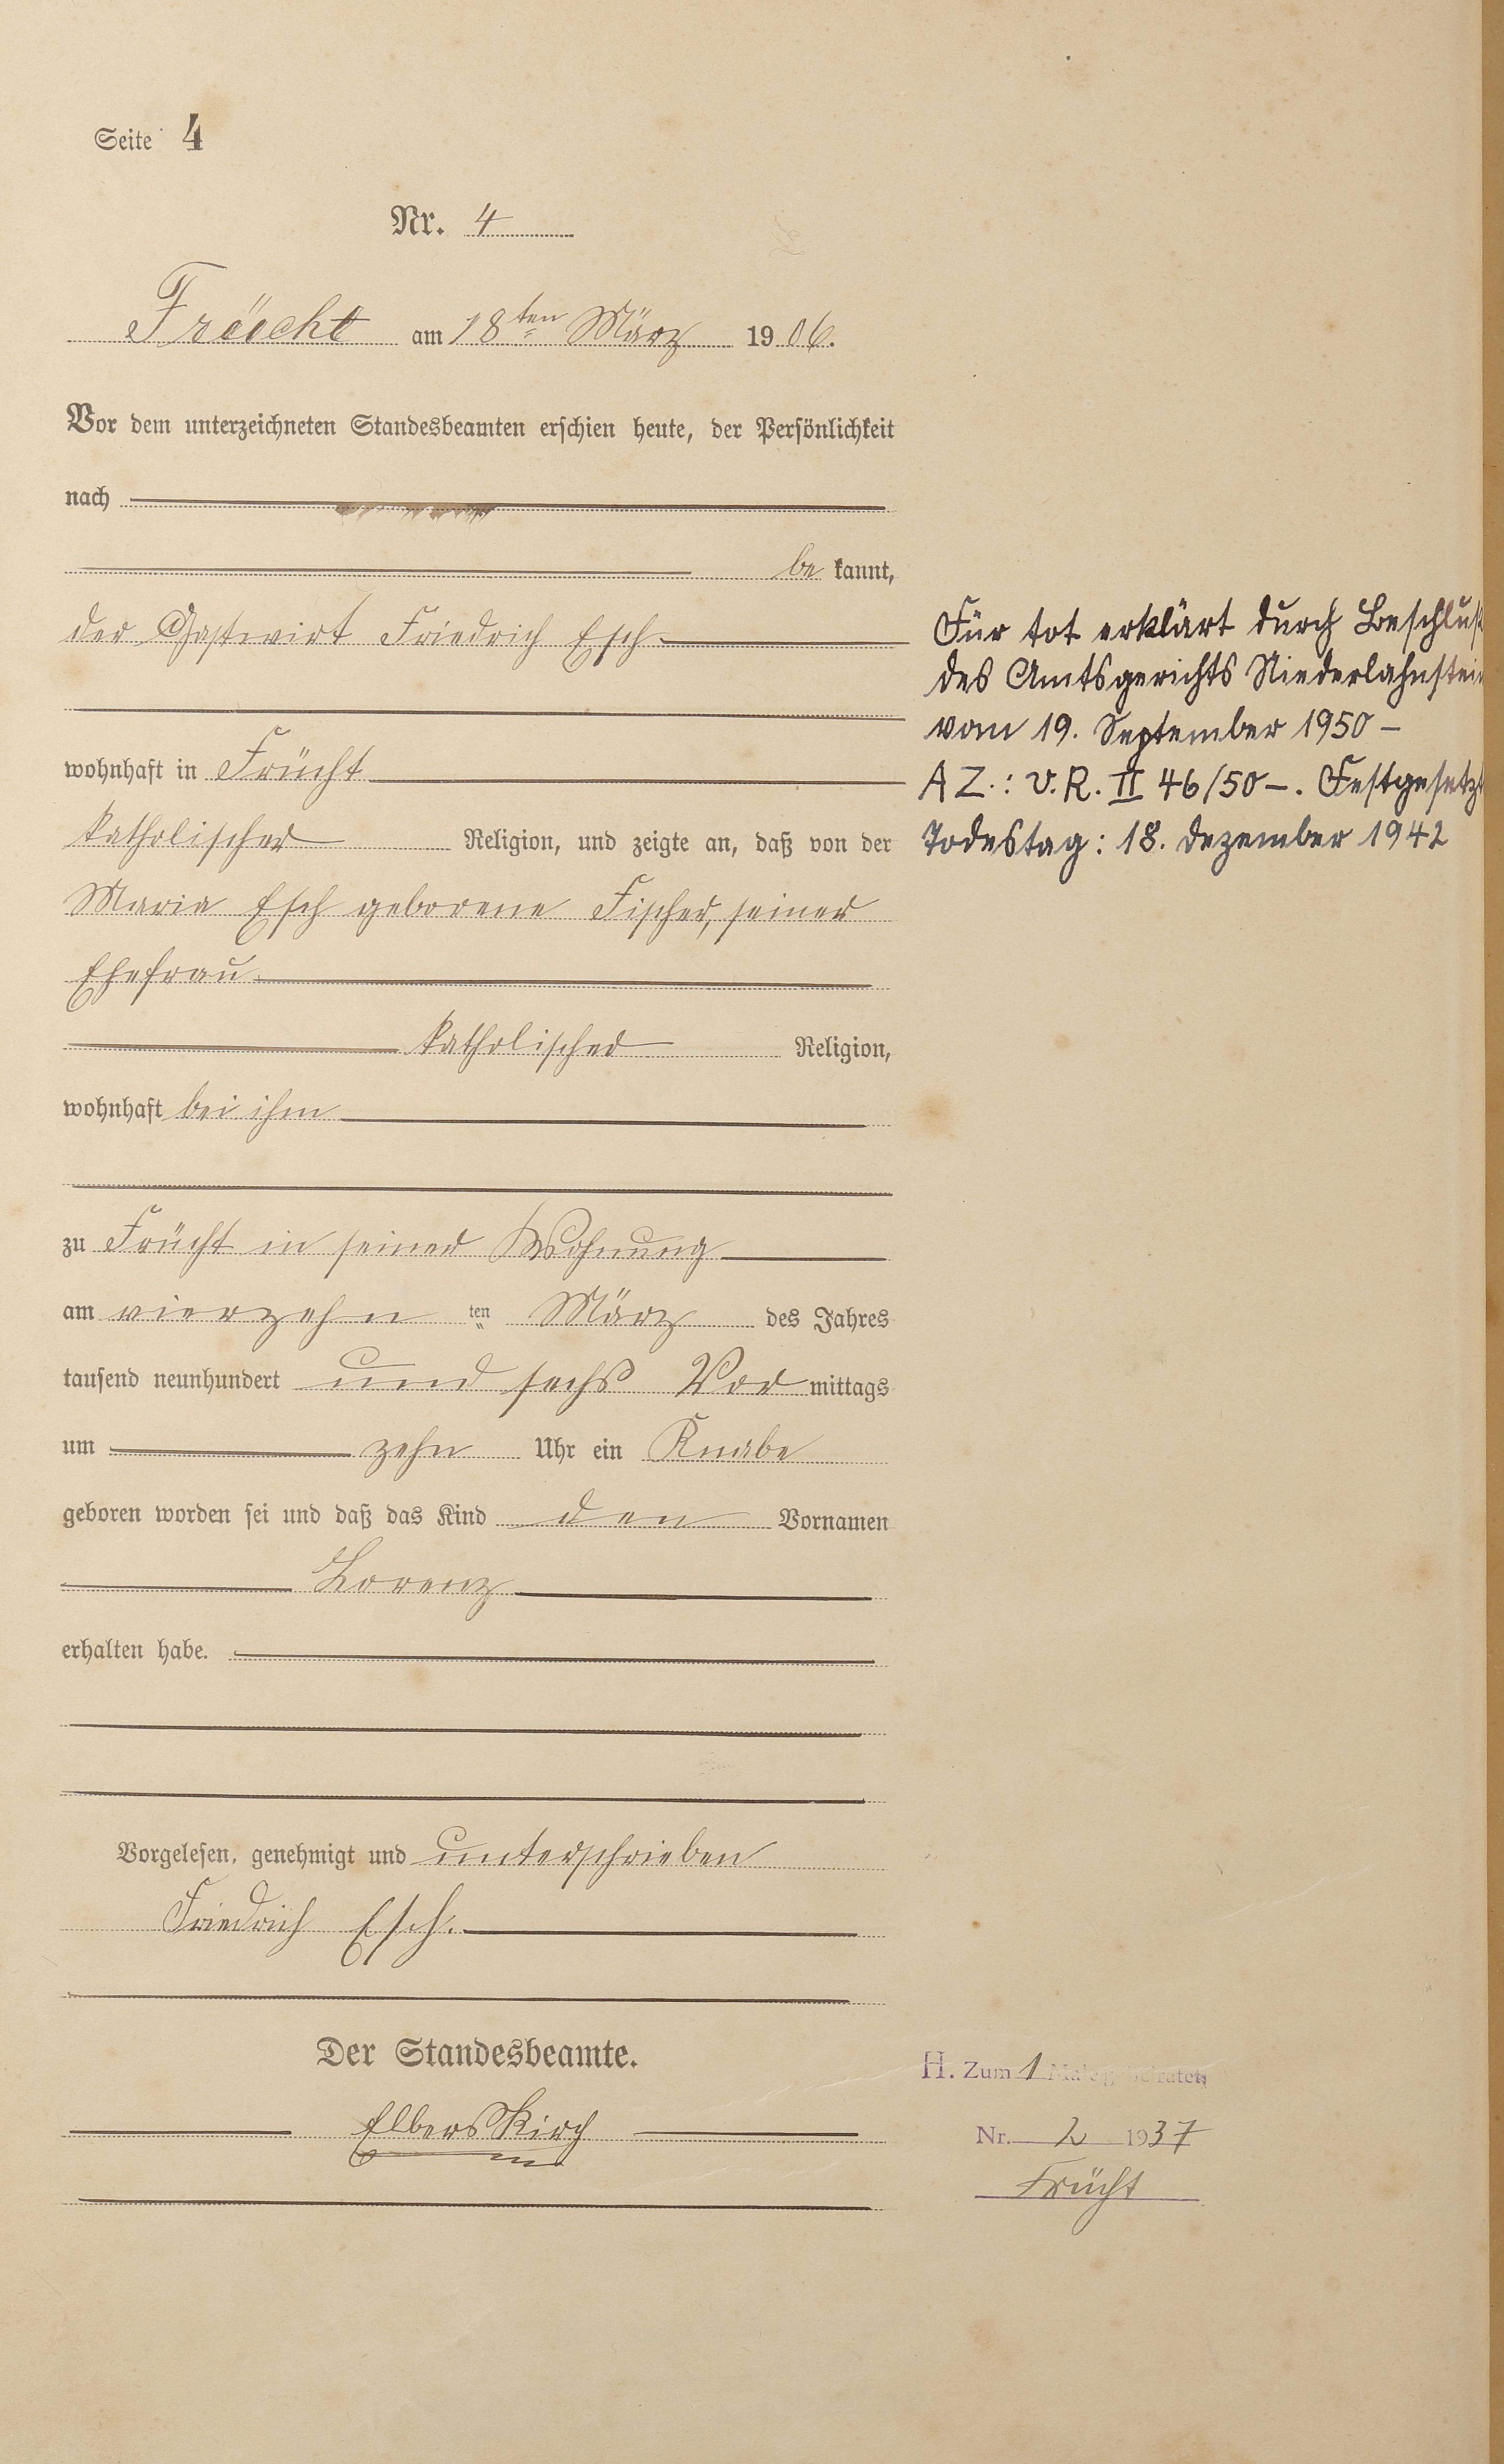 Seite 4
Nr. 4
Früecht am 18ten März 1906.
Vor dem unterzeichneten Standesbeamten erschien heute, der Persönlichkeit
nach
be kannt,
der Gastwirt Friedrich Esch
wohnhaft in Frücht
katholischer Religion, und zeigte an, daß von der
Maria Esch geborene Fischer, seiner
Ehefrau
katholischer Religion,
wohnhaft bei ihm
zu Frücht in seiner Wohnung
am vierzehn ten März des Jahres
tausend neunhundert und sechs Vor mittags
um zehn Uhr ein Knabe
geboren worden sei und daß das Kind den Vornamen
Lorenz
erhalten habe.
Vorgelesen, genehmigt und unterschrieben
Friedrich Esch.
Der Standesbeamte.
Elberskirch
Für tot erklärt durch Beschluß
des Amtsgerichts Niederlahnstein
vom 19. September 1950 –
AZ.: V.R. II 46/50 –. Festgesetzt
Todestag: 18. Dezember 1942
H. Zum 1 Male geheiratet
Nr. 2 1937
Frücht